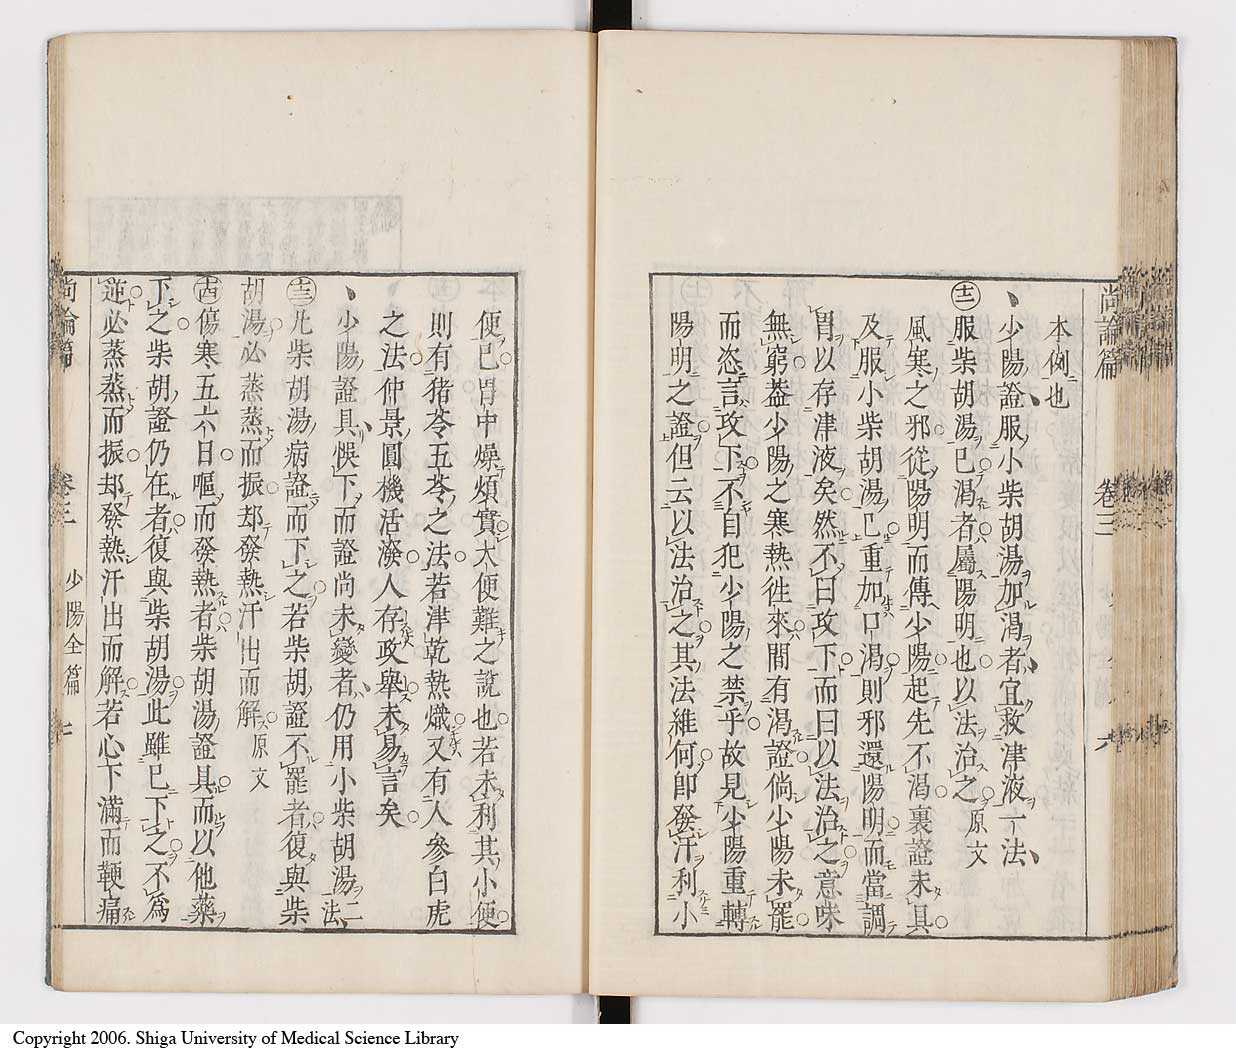 尚論篇 卷三 六
本例也
少陽證服小柴胡湯加渴者宜救津液一法
㊂服柴胡湯已渴者屬陽明也以法治之 原文
風寒之邪從陽明而傳少陽起先不渴裏證未具
及服小柴胡湯已重加口渴則邪還陽明而當調
胃以存津液矣然不曰攻下而曰以法治之意味
無窮葢少陽之寒熱徃來間有渴證倘少陽未罷
而恣言攻下不自犯少陽之禁乎故見少陽重轉
陽明之證但云以法治之其法維何卽發汗利小
便已胃中燥煩實大便難之說也若未利其小便
則有猪苓五苓之法若津乾熱熾又有人參白虎
之法仲景圓機活潑人存政舉未易言矣
少陽證具悞下而證尚未變者仍用小柴胡湯二法
凡柴胡湯病證而下之若柴胡證不罷者復與柴
胡湯必蒸蒸而振却發熱汗出而解 原文
傷寒五六日嘔而發熱者柴胡湯證具而以他藥
下之柴胡證仍在者復與柴胡湯此雖已下之不爲
逆必蒸蒸而振却發熱汗出而解若心下滿而鞕痛
尚論篇 卷三 少陽全篇 七
Copyright 2006. Shiga University of Medical Science Library